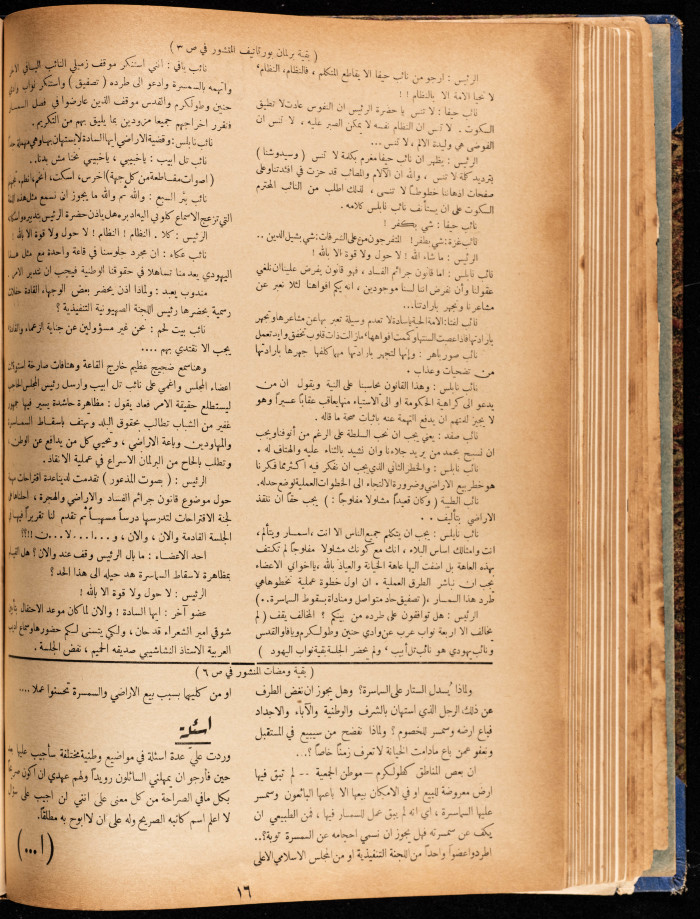 ( بقية برلمان بورتاتيف المنشور في ص ٣ )
الرئيس : ارجو من نائب حيفا الا يقاطع المتكلم ، فالنظام، النظام،
لا تحيا الامة الا بالنظام !!
نائب حيفا : لا تنس يا حضرة الرئيس ان النفوس عادت لا تطيق
السكوت . لا تنس ان النظام نفسه لا يمكن الصبر عليه ، لا تنس ان
الفوضى هي وليدة الالم ، لا تنس ...
الرئيس : يظهر ان نائب حيفا مغرم بكلمة لا تنس ( وسيدوشنا )
بترديد كلمة لا تنس ، والله ان الآلام والمصائب قد حزت في افئدتنا وعلى
صفحات اذهاننا خطوطاً لا تنسى ، لذلك اطلب من النائب المحترم
السكوت على ان يستأنف نائب نابلس كلامه .
نائب حيفا : شي بكفر !
نائب غزة : شي بطفر ! المتفرجون من على الشرفات : شي بشيل الدين ..
الرئيس : ما شاء الله ! لا حول ولا قوة الا بالله !
نائب نابلس : اما قانون جرائم الفساد ، فهو قانون يفرض علينا ان نلغي
عقولنا وأن نفرض اننا لسنا موجودين ، انه يكم افواهنا لئلا نعبر عن
مشاعرنا ونجهر بارادتنا...
نائب لفتا : الامة الحية ياسادة لا تعدم وسيلة تعبر بها عن مشاعرها وتجهر
بارادتها فاذا عصبت السنتها وكمت افواهها، ما زالت ذات قلوب تخفق وايد تعمل
نائب صور باهر : وانها لتجهر بارادتها مهما كلفها جهرها بارادتها
من تضحيات وعذاب .
نائب نابلس : وهذا القانون يحاسبنا على النية ويقول ان من
يدعو الى كراهية الحكومة او الى الاستياء منها يعاقب عقاباً عسيراً وهو
لا يجيز للمتهم ان يدفع التهمة عنه باثبات صحة ما قاله .
نائب صفد : يعني يجب ان نحب السلطة على الرغم من أنوفنا ويجب
ان نسبح بحمد من يريد جلاءنا وان نشيد بالثناء عليه والهتاف له .
نائب نابلس : والخطر الثاني الذي يجب ان نفكر فيه اكثر مما فكرنا
هو خطر بيع الاراضي وضرورة الالتجاء الى الخطوات العملية لوضع حد له.
نائب الطيبة ( وكان قعيداً مشلولا مفلوجاً : ) يجب حقاً ان ننقذ
الاراضي بتأليف . .
نائب نابلس : يجب ان يتكلم جميع الناس الا انت ،اسمسار ويتألم،
انت وامثالك اساس البلاء ، انك مع كونك مشلولا مفلوجاً لم تكتف
بهذه العاهة بل اضفت اليها عاهة الخيانة والعياذ بالله ،يا اخواي الاعضاء
يجب ان نباشر الطرق العملية ، ان اول خطوة عملية نخطوها هي
طرد هذا السمسار ،،( تصفيق حاد متواصل ومناداة بسقوط السماسرة ..)
الرئيس : هل توافقون على طرده من بينكم ؟ المخالف يقف ( لم
يخالف الا اربعة نواب عرب عن وادي حنين وطولكرم ويافا والقدس
ونائب يهودي هو نائب تل أبيب ، ولم يحضر الجلسة بقية نواب اليهود )
نائب يافي : انني استنكر موقف زميلي النائب اليافي الآخر
واتهمه بالسمسرة وادعو الى طرده ( تصفيق ) واستنكر نواب وادي
حنين وطولكرم والقدس موقف الذين عارضوا في فصل السمسار
فتقرر اخراجهم جميعاً مزودين بما يليق بهم من التكريم .
نائب نابلس : وقضية الاراضي ايها السادة لا يستهان بها وهي مهمة جداً
نائب تل ابيب : ياخبيبي ، ياخبيبي نخنا مثل بدنا ..
( اصوات مقاطعة من كل جهة ) اخرس، اسكت، اغم، انظم،
نائب بئر السبع : والله نم والله ما يجوز اني نسمع مثل هذه
التي تزعج الاسماع كلوني اليه ادبره هل باذن حضرة الرئيس
الرئيس : كلا . النظام ! النظام ! لا حول ولا قوة الا بالله !
نائب عكاء : ان مجرد جلوسنا في قاعة واحدة مع مثل هذا
اليهودي يعد منا تساهلا في حقوقنا الوطنية فيجب ان نتدبر الامر .
مندوب يعبد : ولماذا اذن يحضر بعض الوجهاء القادة حفلات
رسمية يحضرها رئيس اللجنة الصهيونية التنفيذية ؟
نائب بيت لحم : نحن غير مسؤولين عن جناية الزعماء والقادة
يجب الا نقتدي بهم ....
وهنا سمع ضجيج عظيم خارج القاعة وهتافات صارخة
اعضاء المجلس واغمي على نائب تل ابيب وارسل رئيس المجلس الحاجب
ليستطلع حقيقة الامر فعاد يقول : مظاهرة حاشدة يسير فيها جمهور
غفير من الشباب تطالب بحقوق البلد وتهتف باسقاط السماسرة
والمهاودين وباعة الاراضي ، وتحيي كل من يدافع عن الوطن
وتطلب بالحاح من البرلمان الاسراع في عملية الانقاذ .
الرئيس : ( بصوت المذعور ) تقدمت لدينا عدة اقتراحات
حول موضوع قانون جرائم الفساد والاراضي والهجرة ، احلناها
لجنة الاقتراحات لتدرسها درساً مسهباً ثم تقدم لنا تقريراً فيها
الجلسة القادمة والآن ، والآن ، و...ا...لا...ن !!؟؟!
احد الاعضاء : ما بال الرئيس وقف عند والآن ؟ هل القيام
بمظاهرة لاسقاط السماسرة هد حيله الى هذا الحد ؟
الرئيس : لا حول ولا قوة الا بالله !
عضو آخر : ايها السادة ! والآن لما كان موعد الاحتفال بتأبين
شوقي امير الشعراء قد حان ، ولكي يتسنى لكم حضورها وسماع اديب
العربية الاستاذ النشاشيبي صديقه الحميم ، نفض الجلسة .
( بقية ومضات المنشور في ص ٦ )
ولماذا يُسدل الستار على السماسرة؟ وهل يجوز ان نغض الطرف
عن ذلك الرجل الذي استهان بالشرف والوطنية والآباء والاجداد
فباع ارضه وسمسر للخصوم ؟ ولماذا نفضح من سيبيع في المستقبل
ونعفو عمن باع مادامت الخيانة لا تعرف زمناً خاصاً ؟ ..
ان بعض المناطق كطولكرم - موطن الجمعية -- لم تبق فيها
ارض معروضة للبيع او في الامكان بيعها الا باعها البائعون وسمسر
عليها السماسرة ، اي انه لم يبق عمل للسمسار فيها ، فمن الطبيعي ان
يكف عن سمسرته فهل يجوز ان نسمي احجامه عن السمسرة توبة؟..
اطردوا عضواً واحداً من اللجنة التنفيذية او من المجلس الاسلامي الاعلى
او من كليهما بسبب بيع الاراضي والسمسرة تحسنوا عملا ....
اسئلة
وردت علي عدة اسئلة في مواضيع وطنية مختلفة سأجيب عليها
حين فأرجو ان يمهلني السائلون رويداً ولهم عهدي ان اكون صريحاً
بكل مافي الصراحة من كل معنى على انني لن اجيب على سؤال
لا اعلم اسم كاتبه الصريح وله علي ان لا ابوح به مطلقاً.
(ا...)
١٦